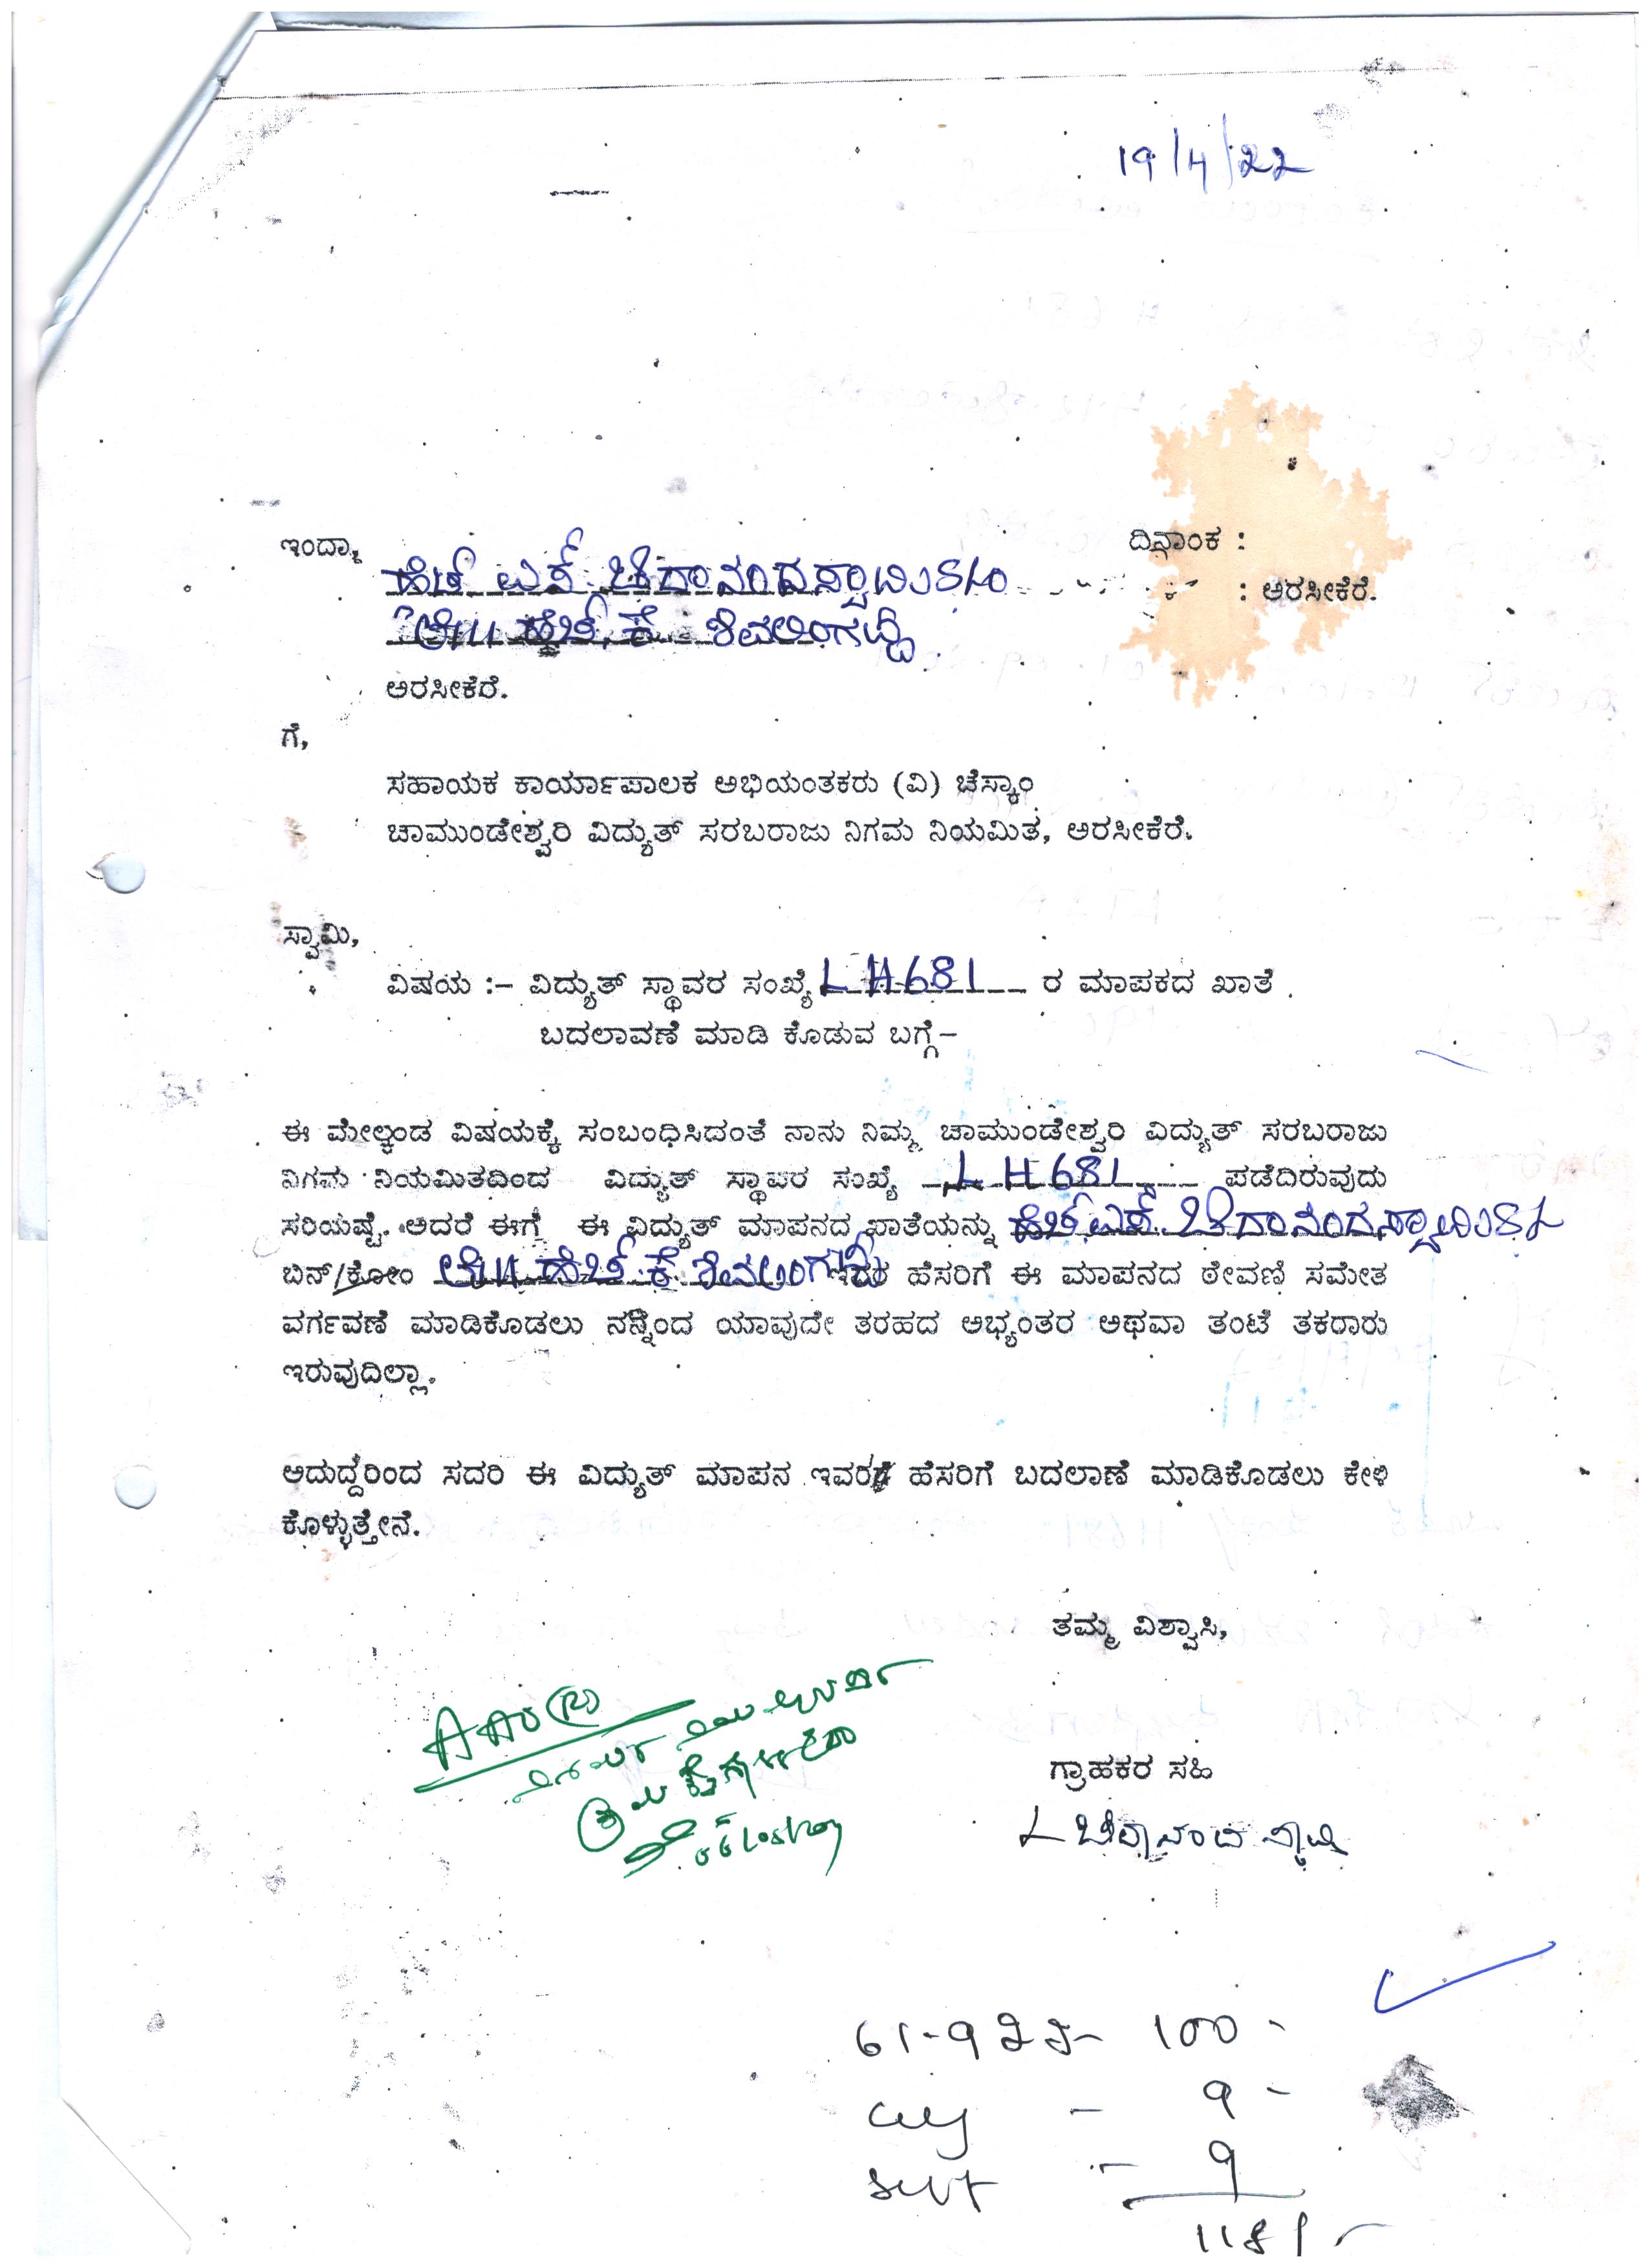 19/4/22
ಇಂದ್ಯಾ
ದಿನಾಂಕ :
ಹೆಚ್ ಎಸ್ ಚಿದಾನಂದಸ್ವಾಮಿ
: ಅರಸೀಕೆರೆ.
ಹೆಚ್ ಕೆ ಶಿವಲಿಂಗಪ್ಪ
ಅರಸೀಕೆರೆ.
ಗೆ,
ಸಹಾಯಕ ಕಾರ್ಯಾಪಾಲಕ ಅಭಿಯಂತಕರು (ವಿ) ಚೆಸ್ಕಾಂ
ಚಾಮುಂಡೇಶ್ವರಿ ವಿದ್ಯುತ್ ಸರಬರಾಜು ನಿಗಮ ನಿಯಮಿತ, ಅರಸೀಕೆರೆ.
ಸ್ವಾಮಿ,
ವಿಷಯ :– ವಿದ್ಯುತ್ ಸ್ಥಾವರ ಸಂಖ್ಯೆ LH681 ರ ಮಾಪಕದ ಖಾತೆ
ಬದಲಾವಣೆ ಮಾಡಿ ಕೊಡುವ ಬಗ್ಗೆ–
ಈ ಮೇಲ್ಕಂಡ ವಿಷಯಕ್ಕೆ ಸಂಬಂಧಿಸಿದಂತೆ ನಾನು ನಿಮ್ಮ ಚಾಮುಂಡೇಶ್ವರಿ ವಿದ್ಯುತ್ ಸರಬರಾಜು
ನಿಗಮ ನಿಯಮಿತದಿಂದ ವಿದ್ಯುತ್ ಸ್ಥಾವರ ಸಂಖ್ಯೆ LH681 ಪಡೆದಿರುವುದು
ಸರಿಯಷ್ಟೆ. ಆದರೆ ಈಗ್ಗೆ ಈ ವಿದ್ಯುತ್ ಮಾಪನದ ಖಾತೆಯನ್ನು ಹೆಚ್ ಎಸ್ ಚಿದಾನಂದಸ್ವಾಮಿ
ಬಿನ್/ಕೋಂ ಹೆಚ್ ಕೆ ಶಿವಲಿಂಗಪ್ಪ ಇವರ ಹೆಸರಿಗೆ ಈ ಮಾಪನದ ಠೇವಣಿ ಸಮೇತ
ವರ್ಗವಣೆ ಮಾಡಿಕೊಡಲು ನನ್ನಿಂದ ಯಾವುದೇ ತರಹದ ಅಭ್ಯಂತರ ಅಥವಾ ತಂಟೆ ತಕರಾರು
ಇರುವುದಿಲ್ಲಾ.
ಆದುದ್ದರಿಂದ ಸದರಿ ಈ ವಿದ್ಯುತ್ ಮಾಪನ ಇವರ ಹೆಸರಿಗೆ ಬದಲಾಣೆ ಮಾಡಿಕೊಡಲು ಕೇಳಿ
ಕೊಳ್ಳುತ್ತೇನೆ.
ತಮ್ಮ ವಿಶ್ವಾಸಿ,
AAO(R)
ಗ್ರಾಹಕರ ಸಹಿ
ಚಿದಾನಂದ ಸ್ವಾಮಿ
61-922- 100-
- 9-
- 9
118/-